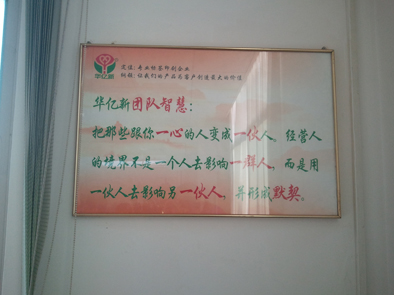 华亿新
定位：专业标签印刷企业
标语：让我们的产品为客户创造最大的价值
华亿新团队智慧：
把那些跟你一心的人变成一伙人，经营人
的境界不是一个人去影响一群人，而是用
一伙人去影响另一伙人，并形成默契。